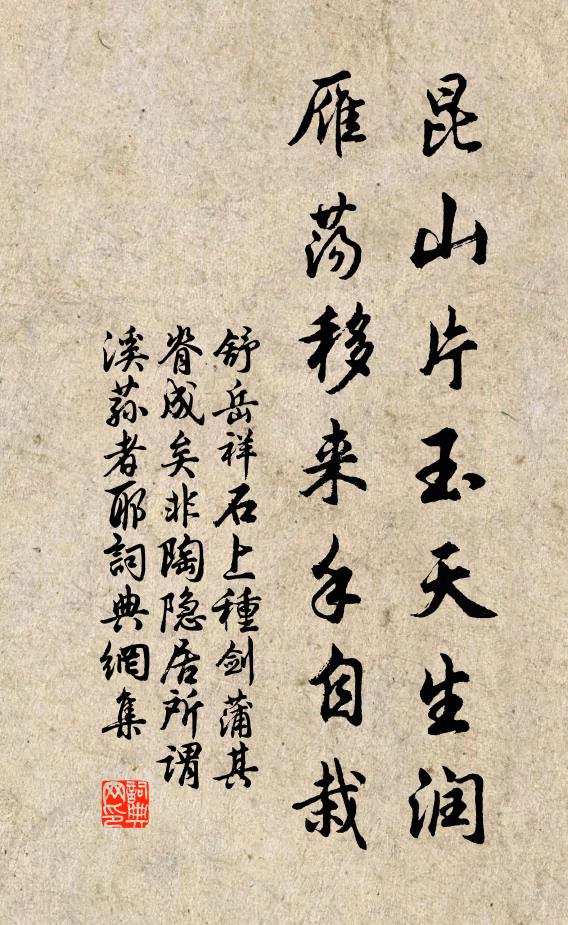 昆山片玉天生润
雁荡移来手自栽
舒岳祥石上種剑蒲其
脊成矣非陶隐居所谓
溪荪者耶詞典網集
詞典网印